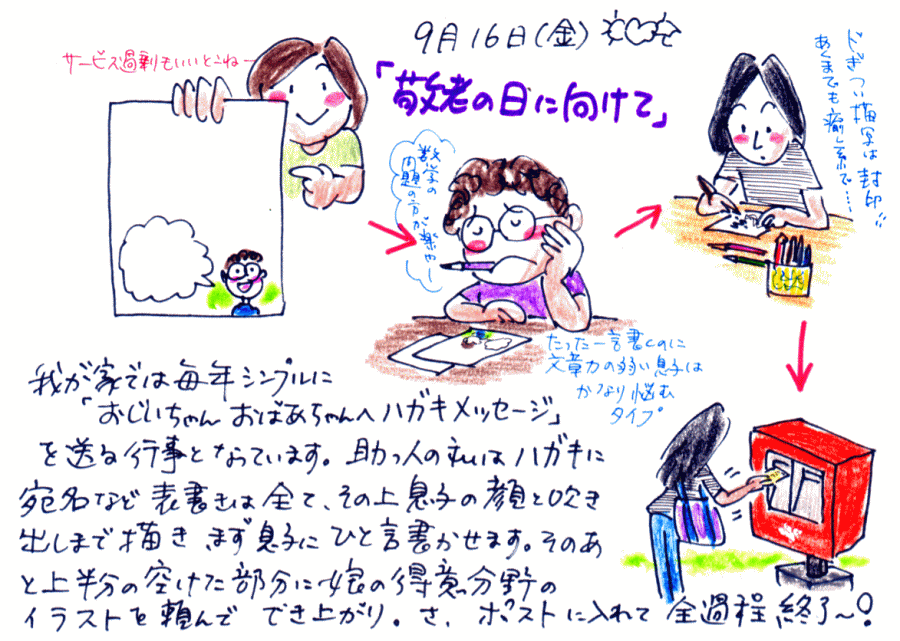 9月16日(金)
「敬老の日に向けて」
サービス過剰もいいとこねー
数学の
問題の方が楽やー
たった一言書くのに
文章力の弱い息子は
かなり悩む
タイプ
どぎつい描写は封印!!
あくまでも癒し系で……
我が家では毎年シンプルに
「おじいちゃんおばあちゃんへハガキメッセージ」
を送る行事となっています。助っ人の私はハガキに
宛名など表書きは全て、その上息子の顔と吹き
出しまで描き、まず息子にひと言書かせます。そのあ
と上半分の空けた部分に娘の得意分野の
イラストを頼んで でき上がり。さ、ポストに入れて全過程終了〜!